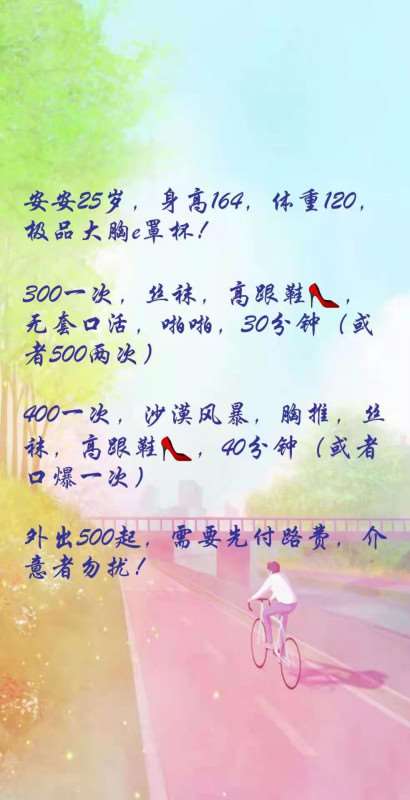 安安25岁，身高164，体重120，
极品大胸e罩杯！
300一次，丝袜，高跟鞋👠，
无套口活，啪啪，30分钟（或
者500两次）
400一次，沙漠风暴，胸推，丝
袜，高跟鞋👠，40分钟（或者
口爆一次）
外出500起，需要先付路费，介
意者勿扰！